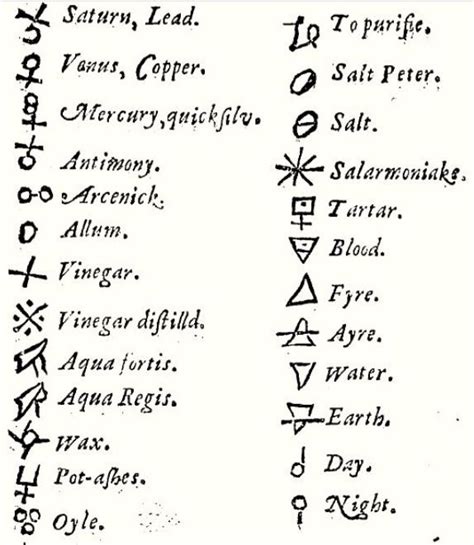 Saturn, Lead.
Venus, Copper.
Mercury, quickſilv.
Antimony.
Arcenick.
Allum.
Vinegar.
Vinegar diſtilld.
Aqua fortis.
Aqua Regis.
Wax.
Pot-aſhes.
Oyle.
To purifie.
Salt Peter.
Salt.
Salarmoniake.
Tartar.
Blood.
Fyre.
Ayre.
Water.
Earth.
Day.
Night.